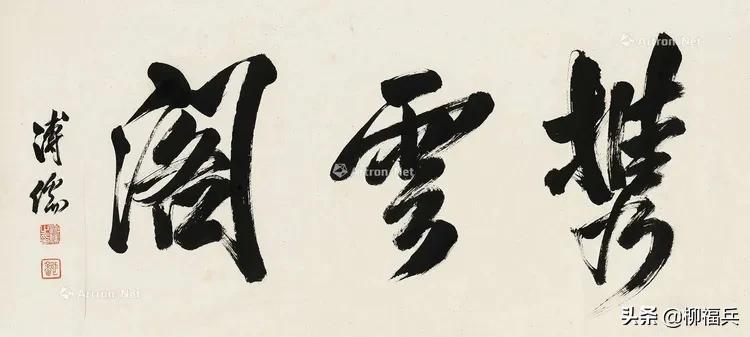 携雲閣
溥儒
Artron.Net
Artron.Net
Artron.Net
Artron.Net
头条 @柳福兵